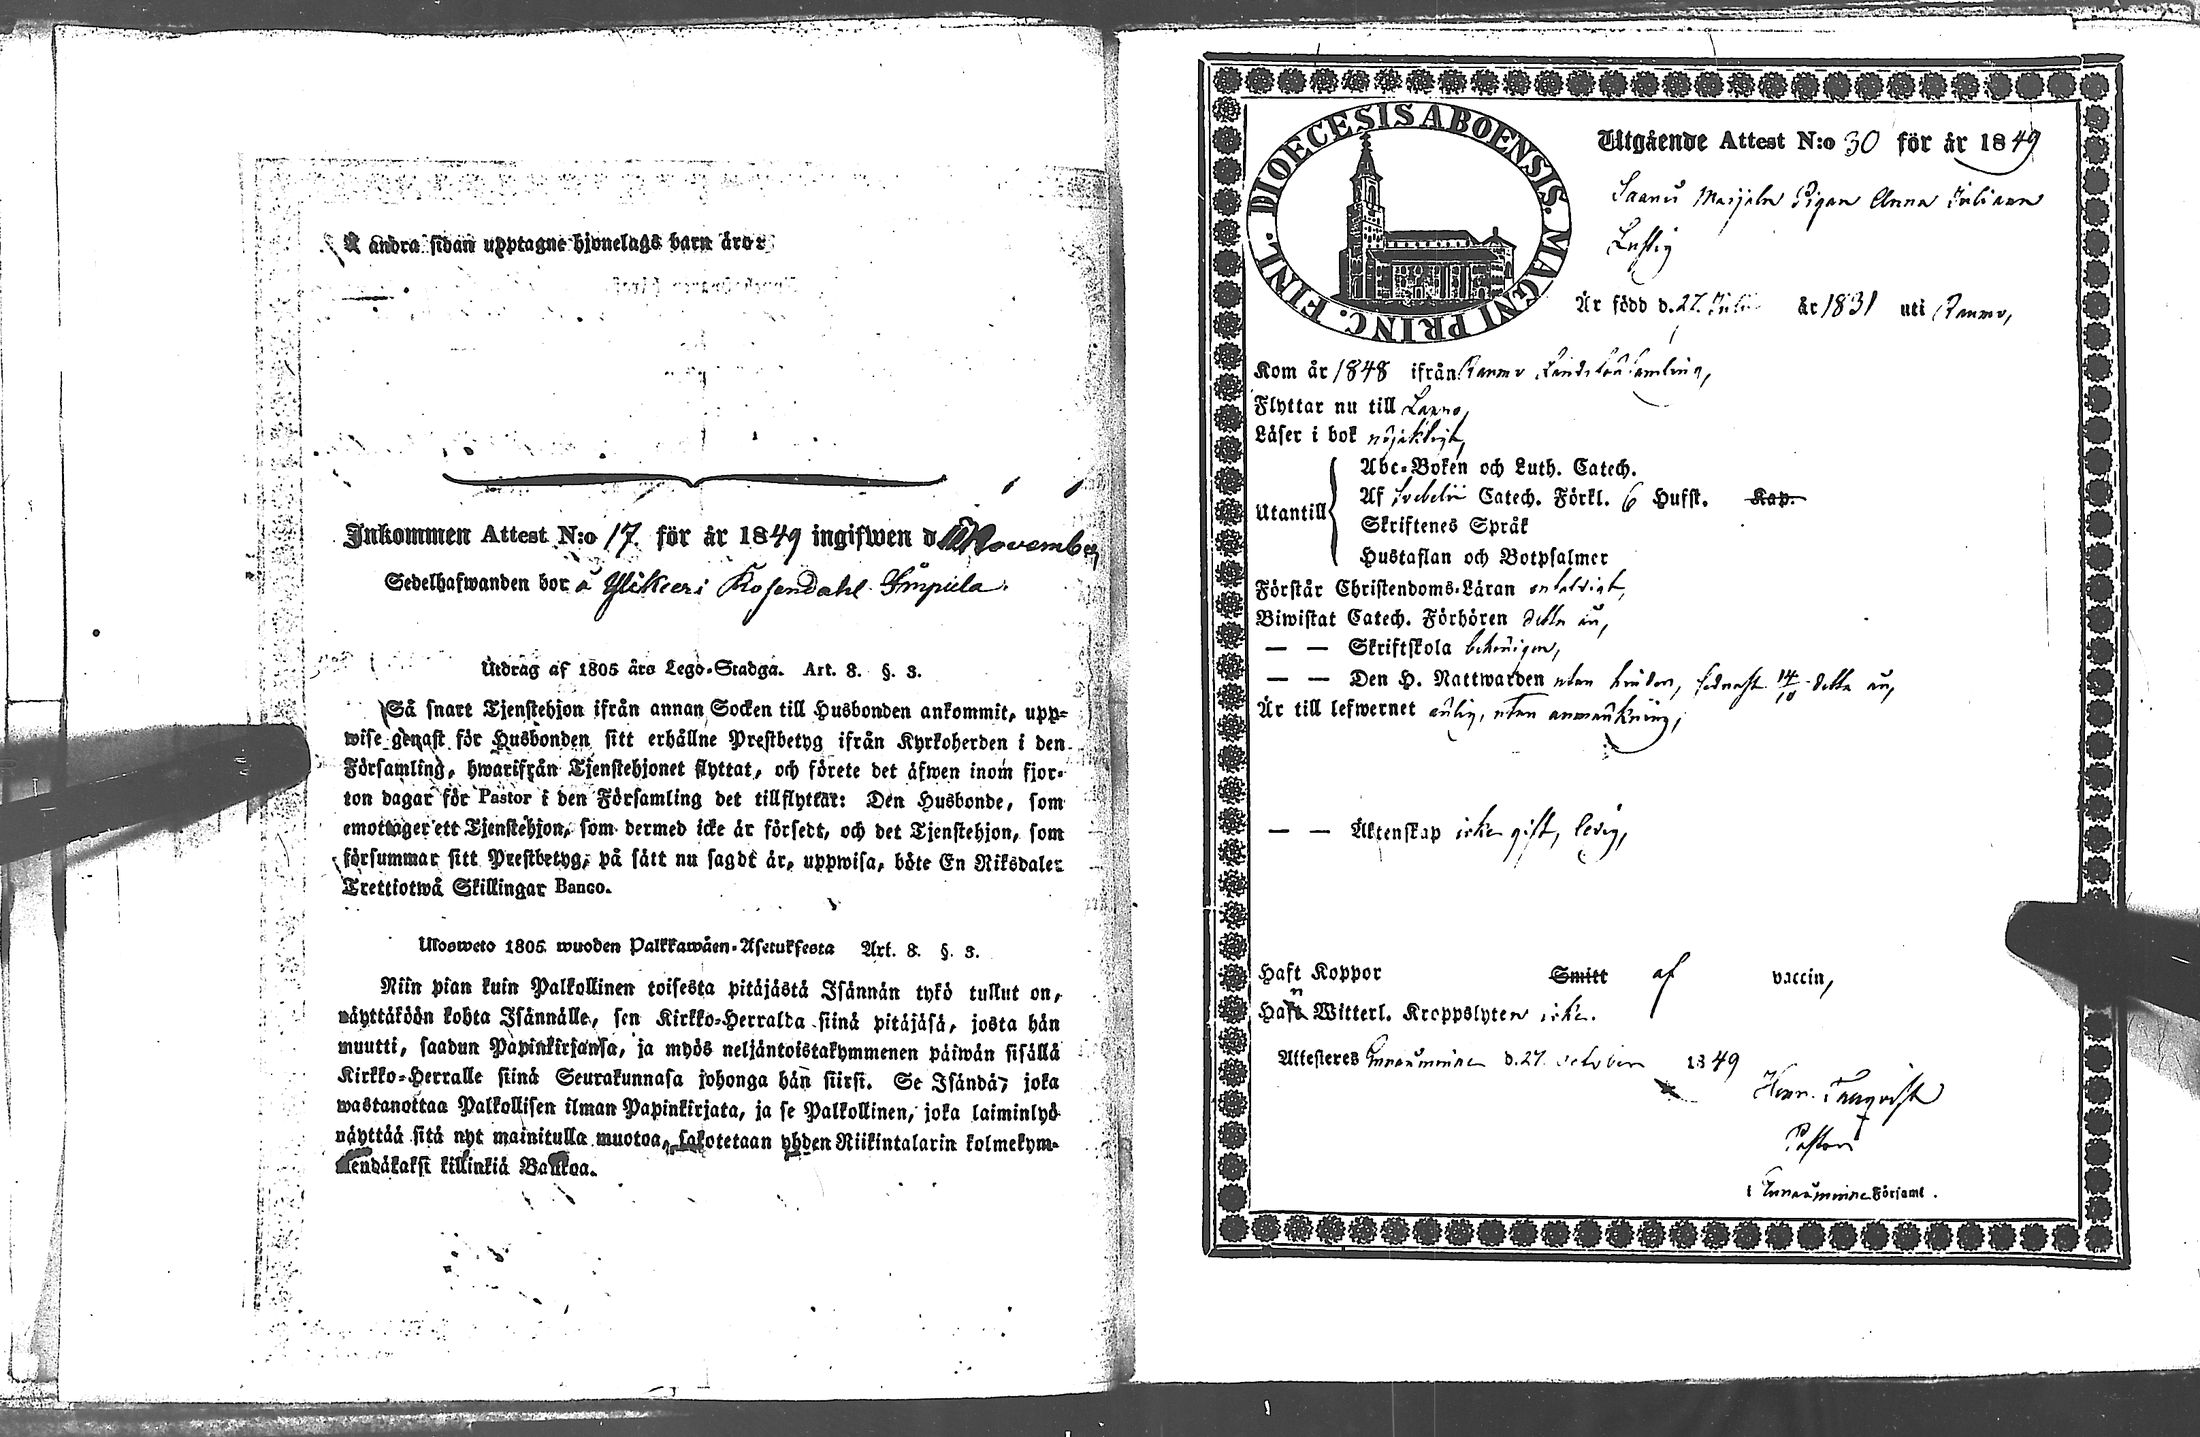 Å andra sidan upptagne hjonelags barn äro:
Inkommen Attest N:o 17. för år 1849 ingifwen d. November
Sedelhafwanden bor å Ylikeeri Rosendahl Impiela.
Utdrag af 1805 års Lego-Stadga. Art. 8. §. 3.
Så snart Tjenstehjon ifrån annan Socken till Husbonden ankommit, upp-
wise genast för Husbonden sitt erhållne Prestbetyg ifrån Kyrkoherden i den
Församling, hwarifrån Tjenstehjonet flyttat, och förete det äfwen inom fjor-
ton dagar för Pastor i den Församling det tillflyttar: Den Husbonde, som
emottager ett Tjenstehjon, som dermed icke är försedt, och det Tjenstehjon, som
försummar sitt Prestbetyg, på sätt nu sagdt är, uppwisa, böte En Riksdaler
Trettiotwå Skillingar Banco.
Ulosweto 1805 wuoden Palkkawäen-Asetuksesta Art. 8. §. 3.
Niin pian kuin Palkollinen toisesta pitäjästä Isännän tykö tullut on,
näyttäköön kohta Isännälle, sen Kirkko-Herralda siinä pitäjäsä, josta hän
muutti, saadun Papinkirjansa, ja myös neljäntoistakymmenen päiwän sisällä
Kirkko-Herralle siinä Seurakunnasa johonga hän siirsi. Se Isändä, joka
wastanottaa Palkollisen ilman Papinkirjata, ja se Palkollinen, joka laiminlyö
näyttää sitä nyt mainitulla muotoa, sakotetaan yhden Riikintalarin kolmekym-
mendäkaksi killinkiä Bankoa.
DIOECESIS ABOENSIS. MAGNI PRINC. FINL.
Utgående Attest N:o 30 för år 1849
Pigan Anna Juliana
Lustig
Är född d. 27. Juli år 1831 uti Raumo,
Kom år 1848 ifrån Raumo Landsförsamling,
Flyttar nu till Lappo,
Läser i bok nöjaktigt,
Abc-Boken och Luth. Catech.
Utantill Af Svebelii Catech. Förkl. 6 Hufst. Kap.
Skriftenes Språk
Hustaflan och Botpsalmer
Förstår Christendoms-Läran enfaldigt,
Biwistat Catech. Förhören detta år,
— — Skriftskola behörigen,
— — Den H. Nattwarden utan hinder, sednast 14/10 detta år,
Är till lefwernet ärlig, utan anmärkning,
— — Äktenskap icke gift, ledig,
Haft Koppor Smitt af vaccin,
Hafn Witterl. Kroppslyten icke.
Attesteres d. 27. October 1849
Henr.
Pastor
i Församl.